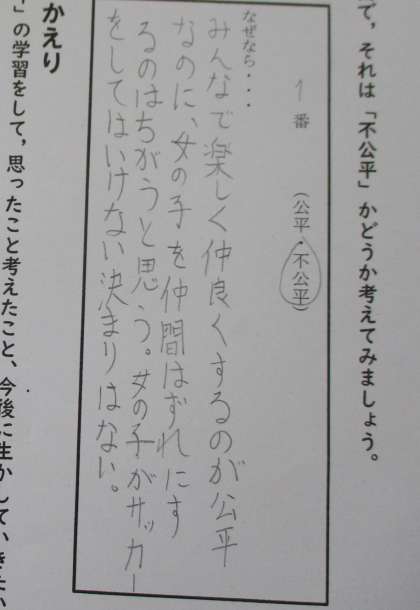 て，それは「不公平」かどうか考えてみましょう。
1番　（公平・不公平）
なぜなら・・・
みんなで楽しく仲良くするのが公平
なのに、女の子を仲間はずれにす
るのはちがうと思う。女の子がサッカー
をしてはいけない決まりはない。
かえり
」の学習をして，思ったこと考えたこと、今後に生かしていきたい